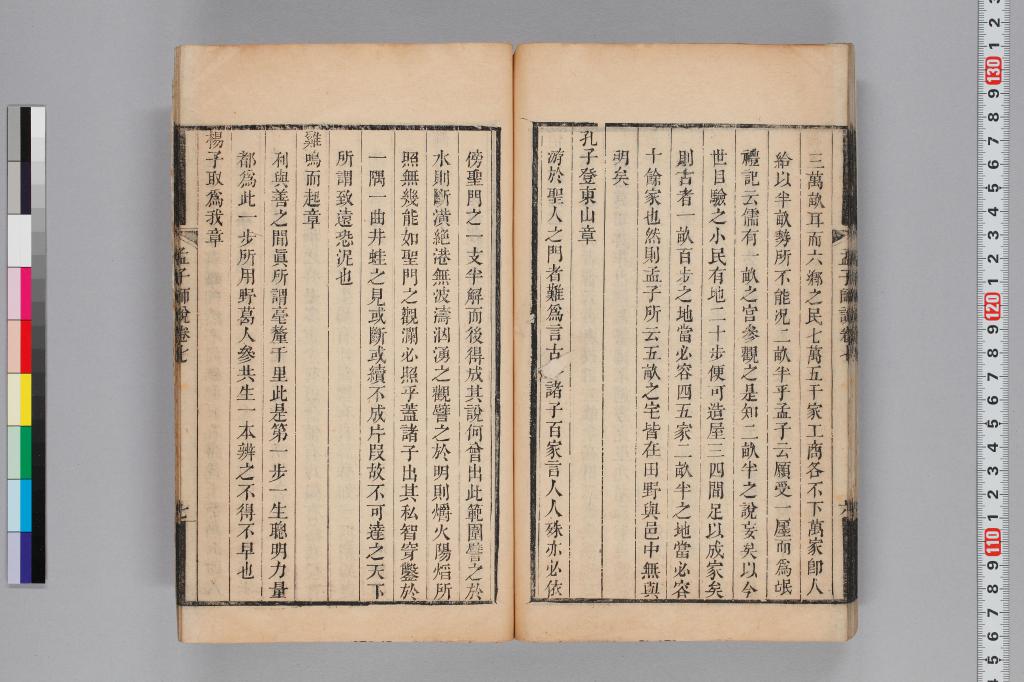 三萬畝耳而六鄉之民七萬五千家工商各不下萬家卽人
給以半畝勢所不能况二畝半乎孟子云願受一廛而爲氓
禮記云儒有一畝之宮參觀之是知二畝半之說妄矣以今
世目驗之小民有地二十步便可造屋三四間足以成家矣
則古者一畝百步之地當必容四五家二畝半之地當必容
十餘家也然則孟子所云五畝之宅皆在田野與邑中無與
明矣
孔子登東山章
游於聖人之門者難爲言古諸子百家言人人殊亦必依
孟子師說卷七
六
傍聖門之一支半解而後得成其說何曾出此範圍譬之於
水則斷潢絶港無波濤洶湧之觀譬之於明則爝火陽熖所
照無幾能如聖門之觀瀾必照乎蓋諸子出其私智穿鑿於
一隅一曲井蛙之見或斷或續不成片段故不可達之天下
所謂致遠恐泥也
雞鳴而起章
利與善之間眞所謂毫釐千里此是第一步一生聰明力量
都爲此一步所用野葛人參共生一本辨之不得不早也
楊子取爲我章
孟子師說卷七
七
2
1
130
9
8
7
6
5
4
3
2
1
120
9
8
7
6
5
4
3
2
1
110
9
8
7
6
5